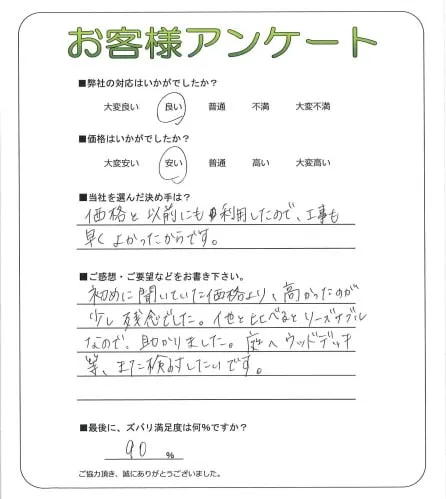 お客様アンケート
■弊社の対応はいかがでしたか？
大変良い 良い 普通 不満 大変不満
■価格はいかがでしたか？
大変安い 安い 普通 高い 大変高い
■当社を選んだ決め手は？
価格と以前にも利用したので、工事も
早くよかったからです。
■ご感想・ご要望などをお書き下さい。
初めに聞いていた価格より、高かったのが
少し残念でした。他と比べるとリーズナブル
なので、助かりました。庭へウッドデッキ
等、また検討したいです。
■最後に、ズバリ満足度は何%ですか？
90 %
ご協力頂き、誠にありがとうございました。